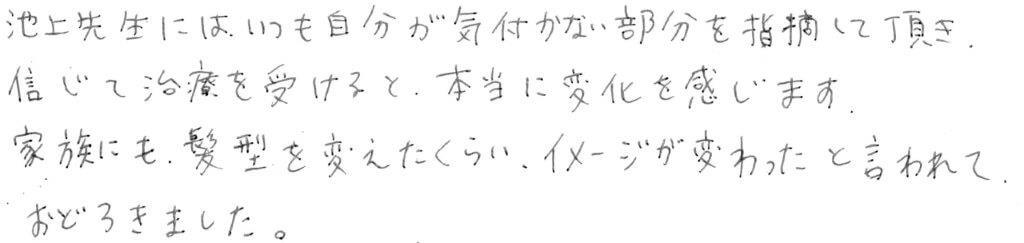 池上先生には、いつも自分が気付かない部分を指摘して頂き、
信じて治療を受けると、本当に変化を感じます。
家族にも、髪型を変えたくらい、イメージが変わったと言われて、
おどろきました。